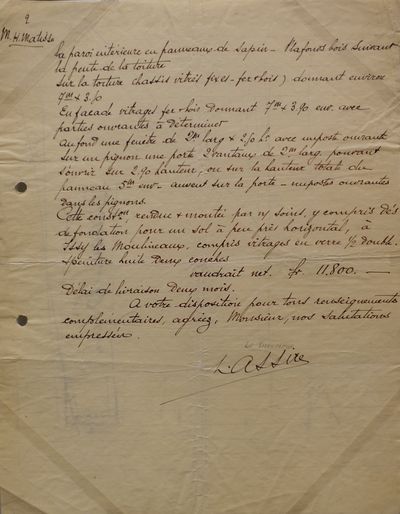 2
M. H. Matisse
la paroi intérieure en panneaux de sapin - Plafonds bois suivant
la pente de la toiture
sur la toiture chassis vitrés fixes - fer & bois) donnant environ
7m x 3/0
En façade vitrages fer & bois donnant 7m x 3.90 env. avec
parties ouvrantes à déterminer
Au fond une fenêtre de 2m larg x 2/0 ht avec imposte ouvrant
Sur un pignon une porte 2 vantaux de 2m larg. pouvant
s'ouvrir sur 2.70 hauteur, ou sur la hauteur totale du
panneau 5m env - auvent sur la porte - impostes ouvrantes
dans les pignons.
Cette conston rendue & montée par n/ soins, y compris Dés
de fondation pour un sol à peu près horizontal, à
Issy les Moulineaux, compris vitrages en verre 1/2 double.
& peinture huile Deux couches
vaudrait net. fr 11,800. —
Délai de livraison Deux mois.
A votre disposition pour tous renseignements
complémentaires, agréez, Monsieur, nos salutations
empressées.
L. ASSire